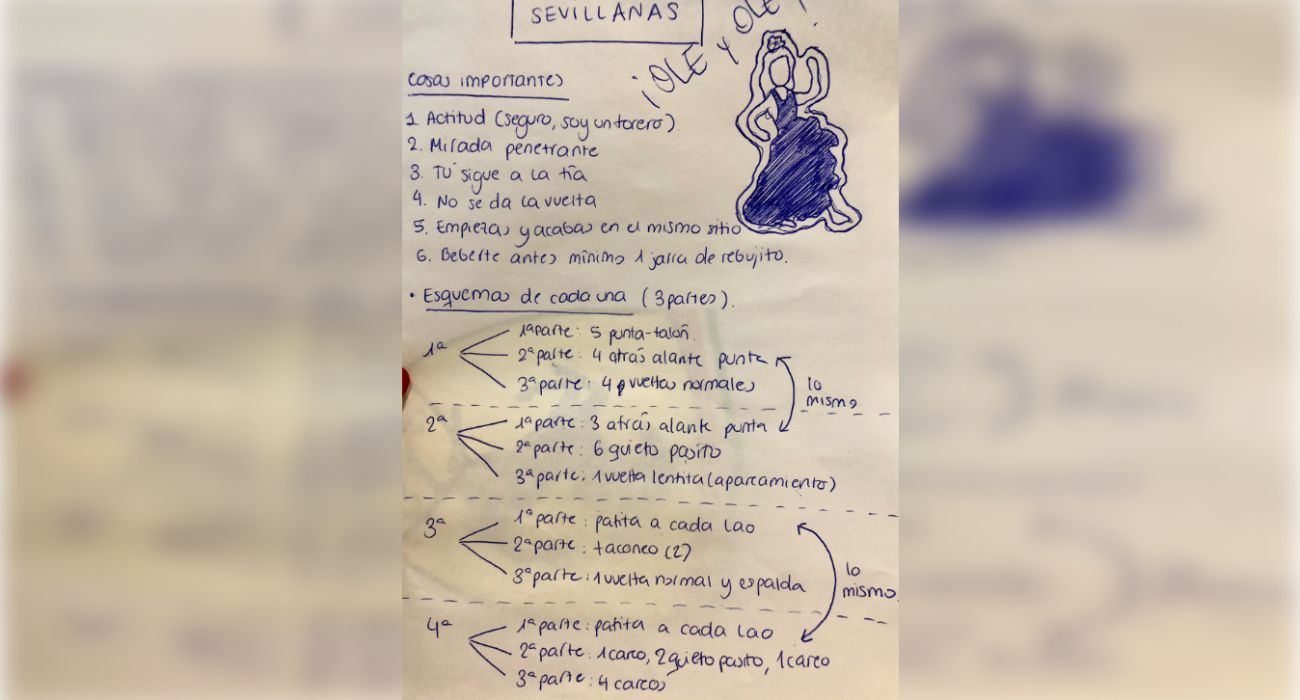 SEVILLANAS
¡OLE Y OLE!
Cosas importantes
1 Actitud (seguro, soy un torero).
2. Mirada penetrante
3. TÚ sigue a la tía
4. No se da la vuelta
5. Empiezas y acabas en el mismo sitio
6. Beberte antes mínimo 1 jarra de rebujito.
• Esquemas de cada una (3 partes).
1ª
1ª parte: 5 punta-talón.
2ª parte: 4 atrás alante punta
3ª parte: 4 vueltas normales
lo mismo
2ª
1ª parte: 3 atrás alante punta
2ª parte: 6 quieto pasito
3ª parte: 1 vuelta lentita (aparcamiento)
3ª
1ª parte: patita a cada lao
2ª parte: taconeo (2)
3ª parte: 1 vuelta normal y espalda
lo mismo.
4ª
1ª parte: patita a cada lao
2ª parte: 1 careo, 2 quieto pasito, 1 careo
3ª parte: 4 careos